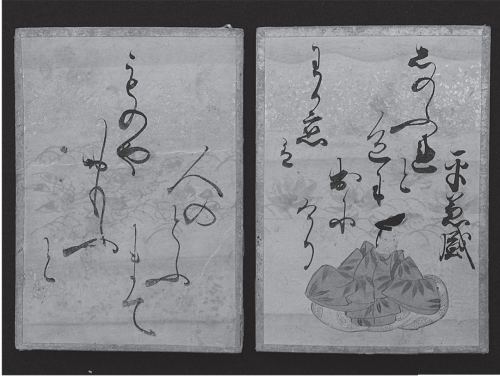 平兼盛
しのふれと
色に
出に
けり
わか恋
は
ものや
おもふ
と
人の
とふ
まて